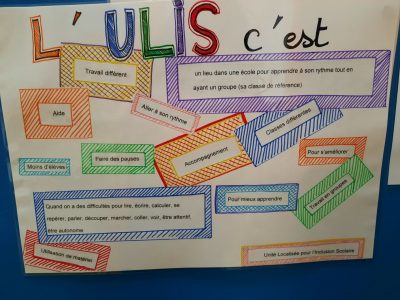 L' ULIS c'est
Travail différent
un lieu dans une école pour apprendre à son rythme tout en
ayant un groupe (sa classe de référence)
Aide
Aller à son rythme
Classes différentes
Accompagnement
Moins d'élèves
Faire des pauses
Pour s'améliorer
Quand on a des difficultés pour lire, écrire, calculer, se
repérer, parler, découper, marcher, coller, voir, être attentif,
être autonome
Pour mieux apprendre
Travail en groupes
Utilisation de matériel
Unité Localisée pour l'Inclusion Scolaire